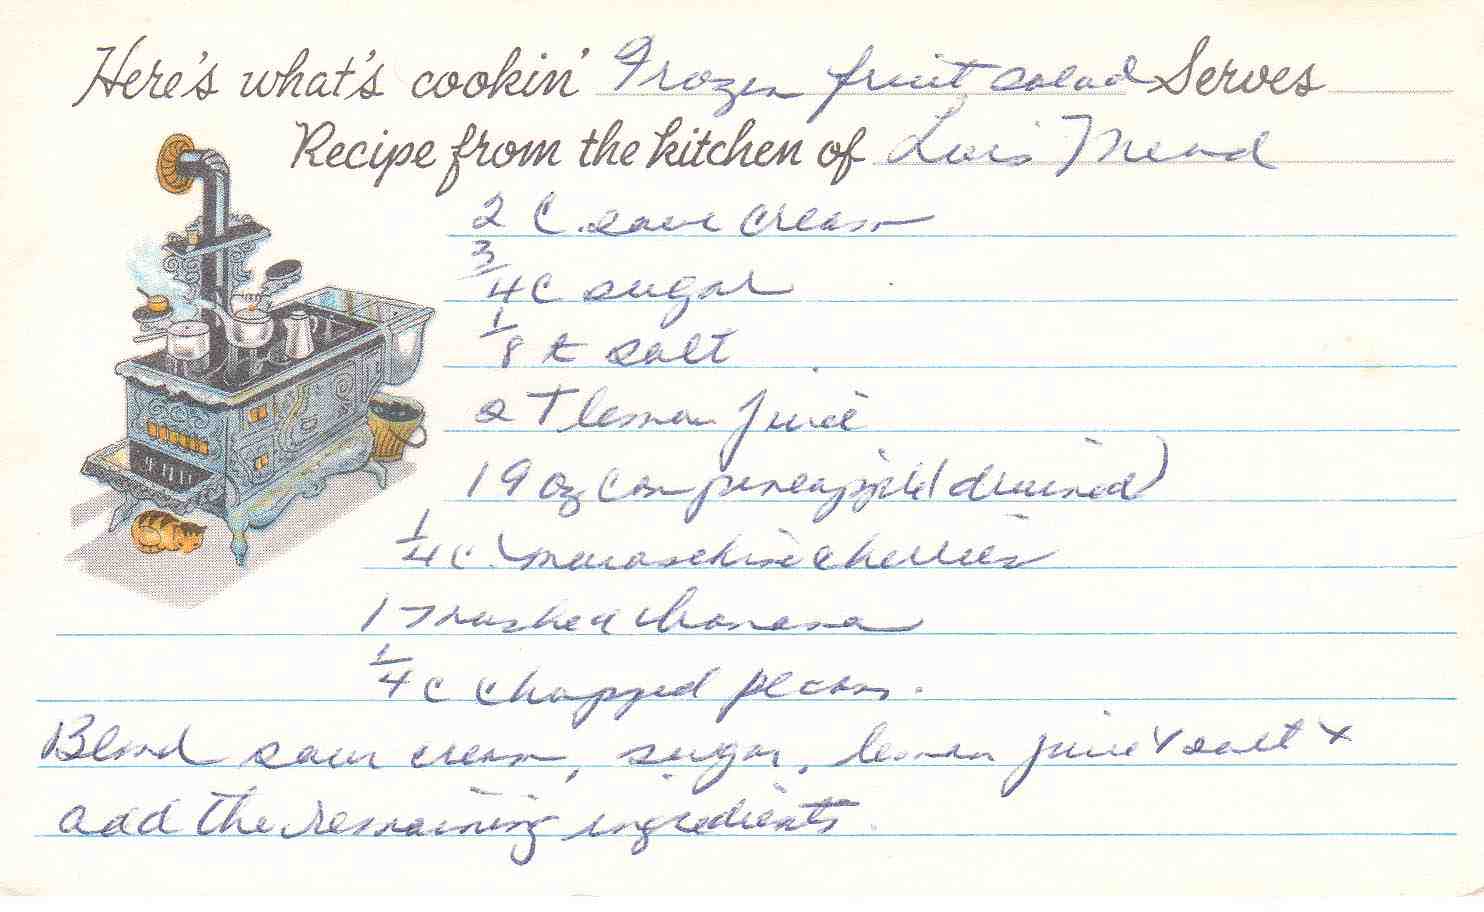 Here's what's cookin' Frozen fruit salad Serves
Recipe from the kitchen of Lois Mead
2 C. sour cream
3/4 C sugar
1/8 t salt
2 T lemon juice
1 9 oz can pineapple (drained)
1/4 c. maraschino cherries
1 mashed banana
1/4 c chopped pecans.
Blend sour cream, sugar, lemon juice & salt &
add the remaining ingredients.